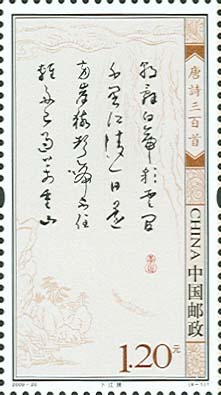 唐詩三百首
朝辞白帝彩云間
千里江陵一日還
兩岸猿聲啼不住
輕舟已過萬重山
CHINA 中国邮政
1.20元
2009-20
下江陵